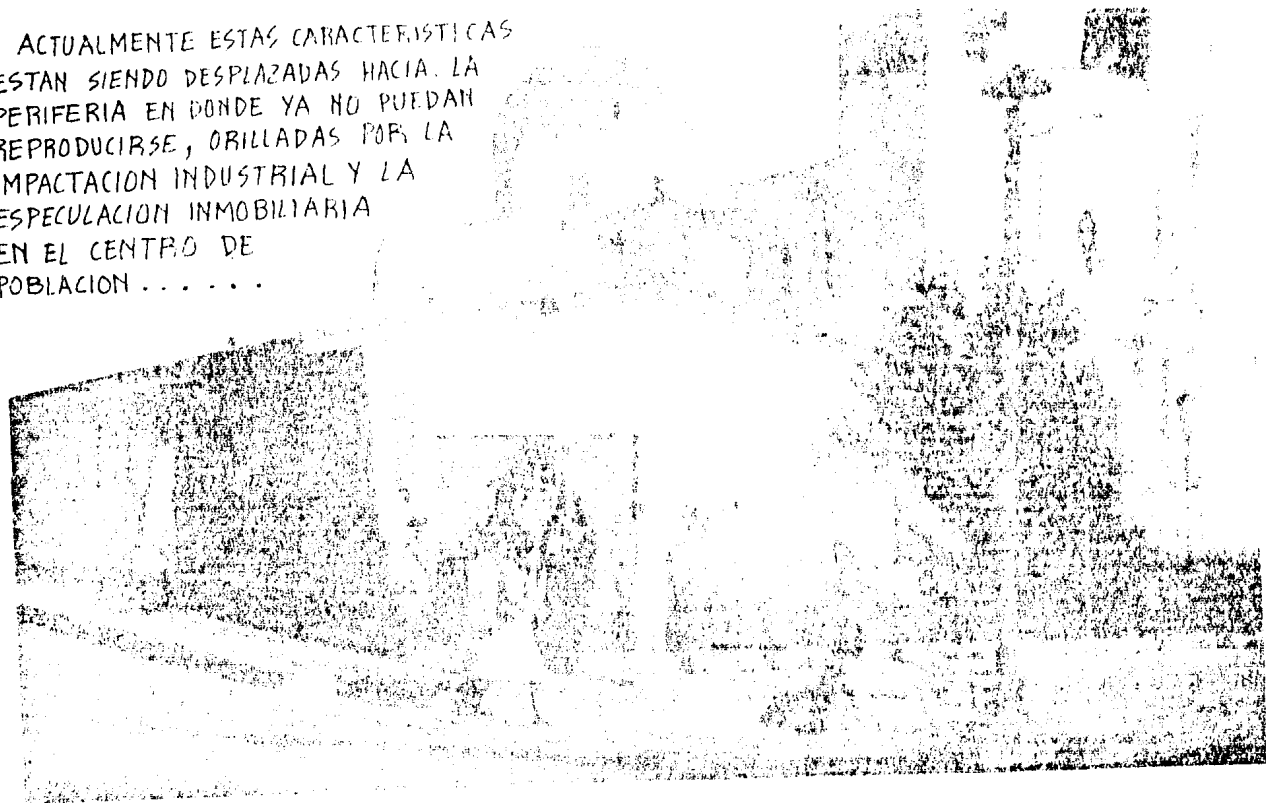 ACTUALMENTE ESTAS CARACTERISTICAS
ESTAN SIENDO DESPLAZADAS HACIA. LA
PERIFERIA EN DONDE YA NO PUEDAN
REPRODUCIRSE, ORILLADAS POR LA
IMPACTACION INDUSTRIAL Y LA
ESPECULACION INMOBILIARIA
EN EL CENTRO DE
POBLACION ......